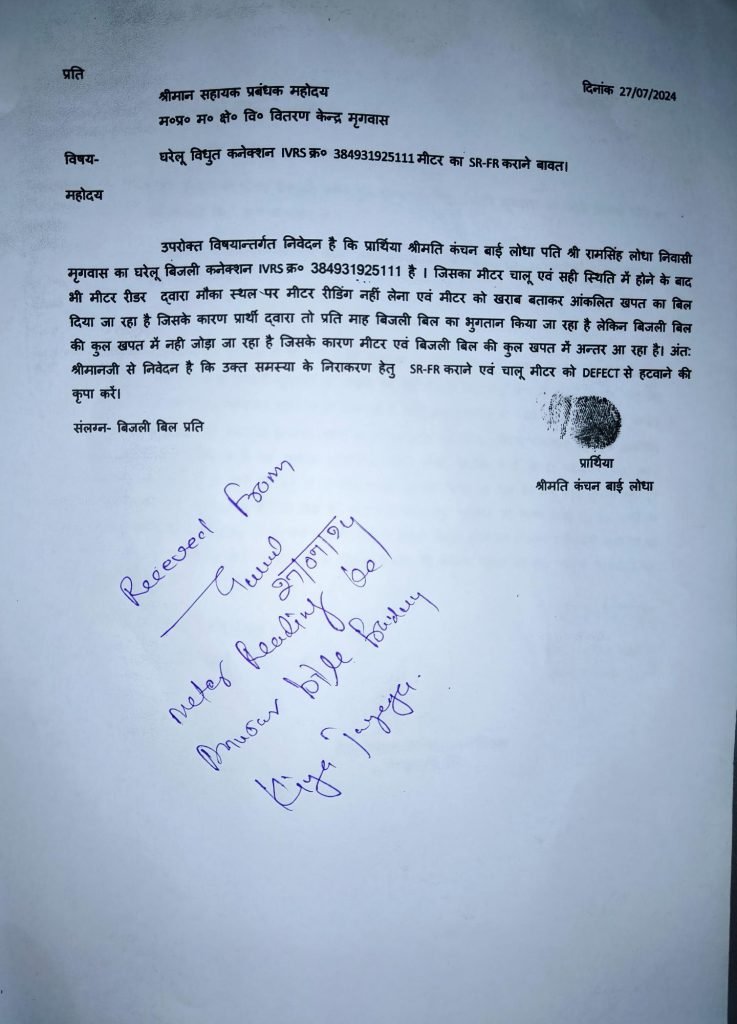 प्रति
दिनांक 27/07/2024
श्रीमान सहायक प्रबंधक महोदय
म०प्र० म० क्षे० वि० वितरण केन्द्र मृगवास
विषय- घरेलू विधुत कनेक्शन IVRS क्र० 384931925111 मीटर का SR-FR कराने बावत।
महोदय
उपरोक्त विषयान्तर्गत निवेदन है कि प्रार्थिया श्रीमति कंचन बाई लोधा पति श्री रामसिंह लोधा निवासी
मृगवास का घरेलू बिजली कनेक्शन IVRS क्र० 384931925111 है । जिसका मीटर चालू एवं सही स्थिति में होने के बाद
भी मीटर रीडर द्वारा मौका स्थल पर मीटर रीडिंग नहीं लेना एवं मीटर को खराब बताकर आंकलित खपत का बिल
दिया जा रहा है जिसके कारण प्रार्थी द्वारा तो प्रति माह बिजली बिल का भुगतान किया जा रहा है लेकिन बिजली बिल
की कुल खपत में नही जोड़ा जा रहा है जिसके कारण मीटर एवं बिजली बिल की कुल खपत में अन्तर आ रहा है। अंत:
श्रीमानजी से निवेदन है कि उक्त समस्या के निराकरण हेतु SR-FR कराने एवं चालू मीटर को DEFECT से हटवाने की
कृपा करें।
संलग्न- बिजली बिल प्रति
प्रार्थिया
श्रीमति कंचन बाई लोधा
Received From
27/07/24
meter Reading ke
Anusar
Kiya Jayega.